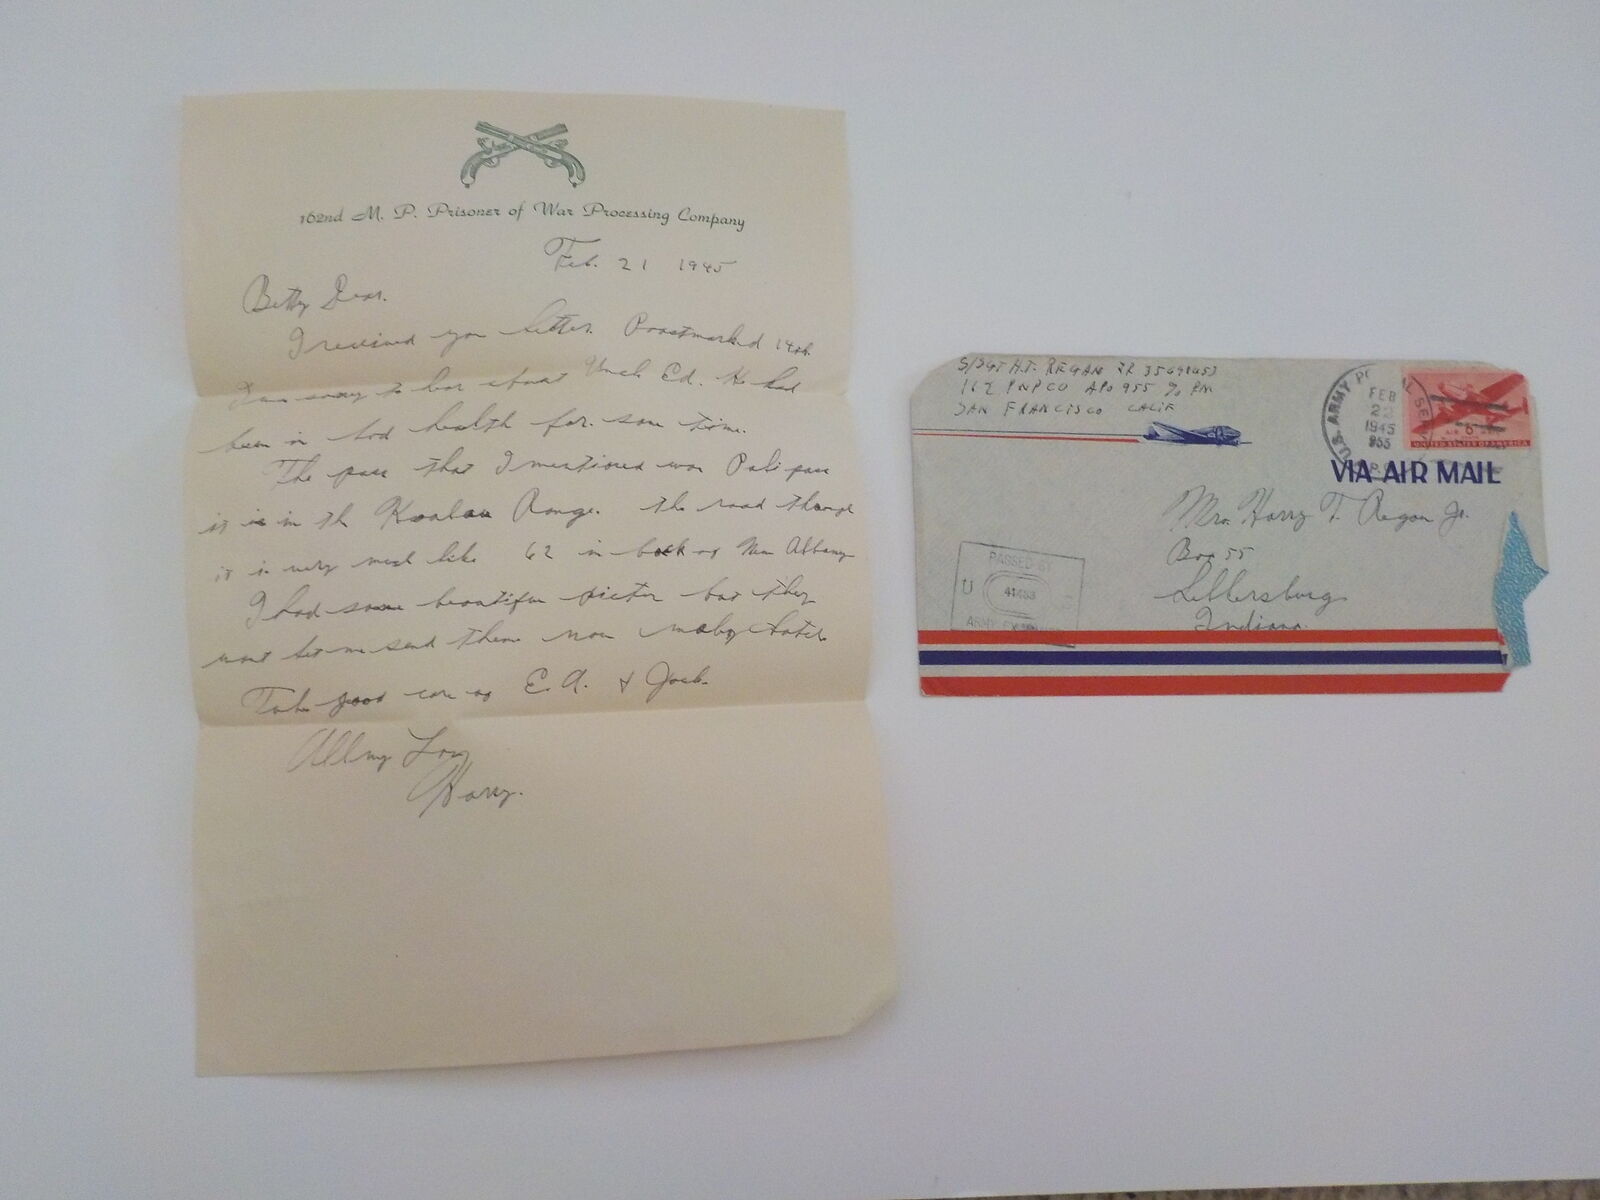 162nd M. P. Prisoner of War Processing Company
Feb. 21 1945
Betty Dear.
I received you letter. Postmarked 14th
I am sorry to hear about Uncle Ed. He had
been in bad health for some time.
The pass that I mentioned was Pali pass
it is in th Koolau Range. the road though
it is very much like 62 in back of New Albany
I had some beautiful picter but they
wont let me send them now maby later
Take good care of E. A. & Jack.
All my Love
Harry.
S/SGT H.T. REGAN JR
162 PWPCO APO 955 % PM
SAN FRANCISCO CALIF
U.S. ARMY
FEB
22
1945
955
AIR 6¢
UNITED STATES OF AMERICA
VIA AIR MAIL
Mrs. Harry T. Regan Jr.
Box 55
Sellersburg
Indiana.
PASSED BY
U S
ARMY EXAMINER